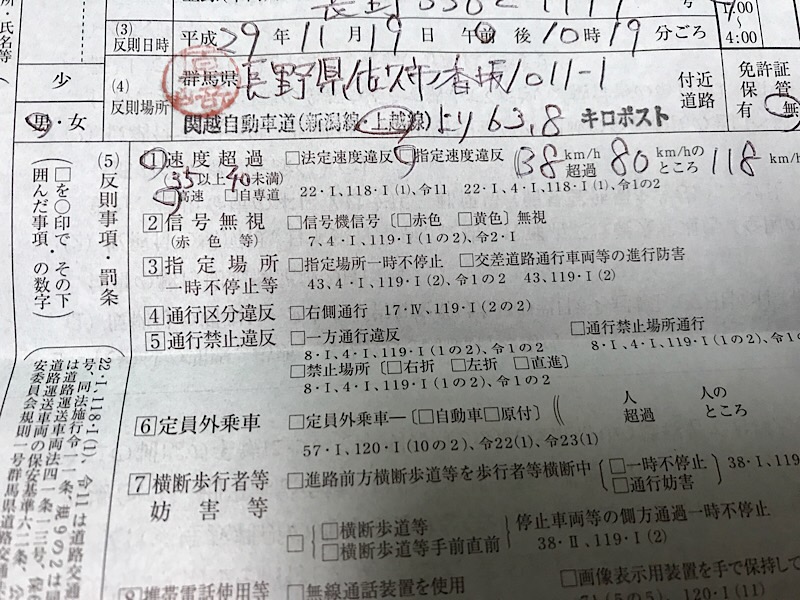 (3)
反則日時
平成29年11月19日 午前後10時19分ごろ
7:00
～
4:00
氏名等
少
男・女
(4)
反則場所
群馬県 長野県佐久市香坂1011-1
付近
道路
関越自動車道(新潟線・上越線)より63.8 キロポスト
免許証
保管
有 無
(5)反則事項・罰条
□を○印で、その下
囲んだ事項・の数字
1 速度超過
35以上40未満)
□高速 □自専道
□法定速度違反 □指定速度違反 (38km/h超過 80km/hのところ118km/h
22・I、118・I(1)、令11 22・I、4・I、118・I(1)、令1の2
2 信号無視
(赤色等)
□信号機信号〔□赤色 □黄色〕無視
7、4・I、119・I(1の2)、令2・I
3 指定場所
一時不停止等
□指定場所一時不停止 □交差道路通行車両等の進行妨害
43、4・I、119・I(2)、令1の2 43、119・I(2)
4 通行区分違反
□右側通行 17・Ⅳ、119・I(2の2)
5 通行禁止違反
□一方通行違反 □通行禁止場所通行
8・I、4・I、119・I(1の2)、令1の2 8・I、4・I、119・I(1の2)、令1
□禁止場所〔□右折 □左折 □直進〕
8・I、4・I、119・I(1の2)、令1の2
6 定員外乗車
□定員外乗車―〔□自動車□原付〕( 人超過 人のところ
57・I、120・I(10の2)、令22(1)、令23(1)
7 横断歩行者等
妨害等
□進路前方横断歩道等を歩行者等横断中(□一時不停止 □通行妨害) 38・I、119
□{□横断歩道等 □横断歩道等手前直前}停止車両等の側方通過一時不停止
38・Ⅱ、119・I(2)
8 携帯電話使用等
□無線通話装置を使用 □画像表示用装置を手で保持して
71(5の5)、120・I(11)
22・I、118・I(1)、令11は道路交通